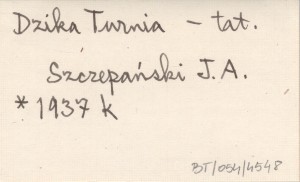 Dzika Turnia – tat.
Szczepański J.A.
* 1937 k
BT/054/4548